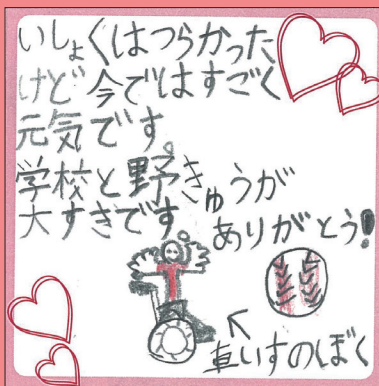 いしょくはつらかった
けど今ではすごく
元気です。
学校と野きゅうが
大すきです
ありがとう!
車いすのぼく